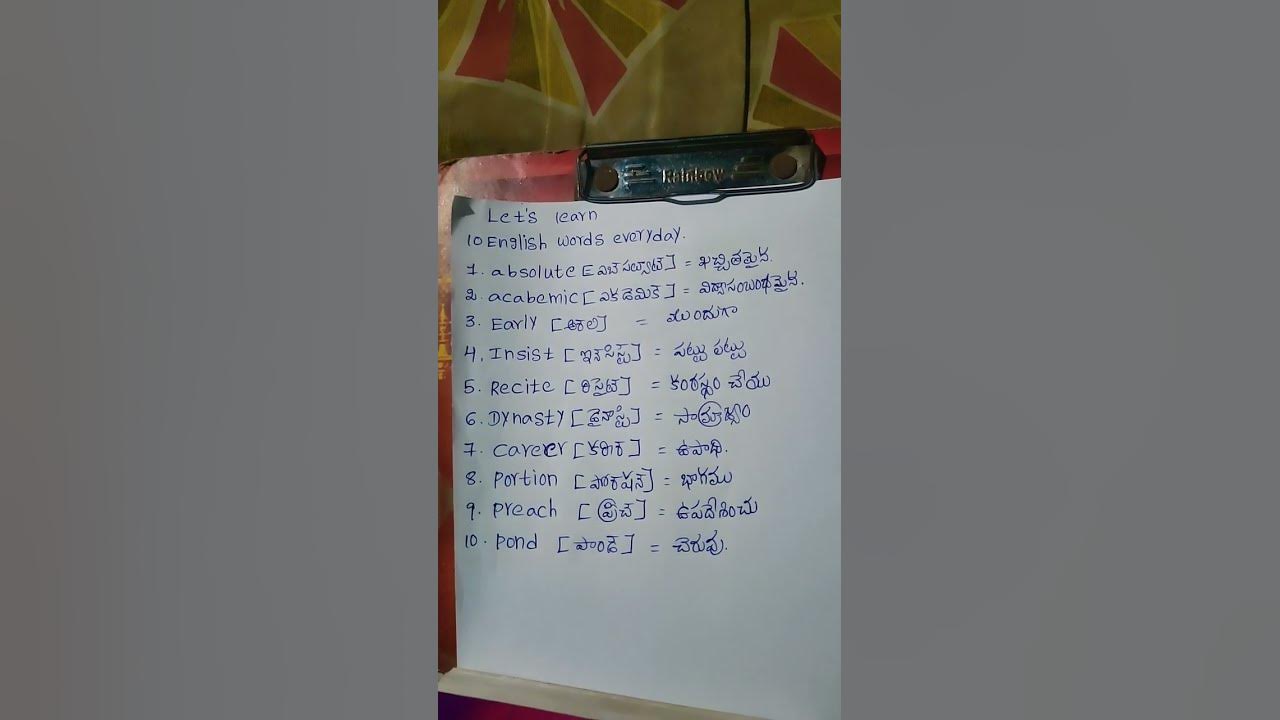 Rainbow
Let's learn
10 English words everyday.
1. absolute [ఎబ్సల్యూట్] = ఖచ్చితమైన.
2. acabemic [ఎకడెమిక్] = విద్యాసంబంధమైన.
3. Early [అరలి] = ముందుగా
4. Insist [ఇన్‌సిస్ట్] = పట్టు పట్టు
5. Recite [రిసైట్] = కంఠస్థం చేయు
6. Dynasty [డైనాస్టి] = సామ్రాజ్యం
7. Career [కరీర్] = ఉపాధి.
8. Portion [పోర్షన్] = భాగము
9. Preach [ప్రీచ్] = ఉపదేశించు
10. Pond [పాండ్] = చెరువు.